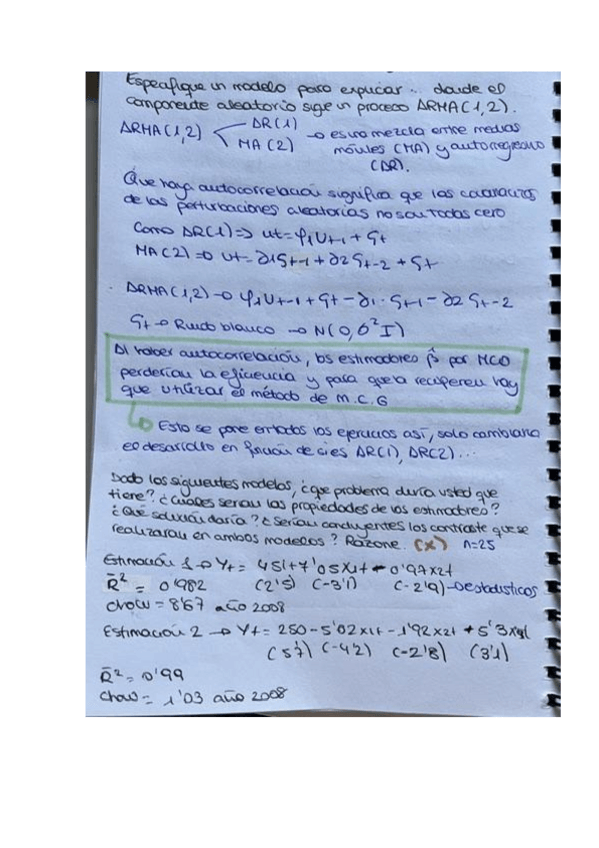 Especifique un modelo para explicar... donde el
componente aleatorio sigue un proceso ARMA(1,2).
ARMA(1,2) < AR(1) → es una mezcla entre medias
MA(2) móviles (MA) y autorregresivo
(AR).
Que haya autocorrelación significa que las covarianzas
de las perturbaciones aleatorias no son todas cero
Como AR(1) ⇒ ut = φ1Ut-1 + ςt
MA(2) ⇒ Ut = ∂1ςt-1 + ∂2ςt-2 + ςt
ARMA(1,2) → φ1Ut-1 + ςt - ∂1·ςt-1 - ∂2ςt-2
ςt → Ruido blanco → N(0, σ²I)
Al haber autocorrelación, los estimadores β̂ por MCO
perderían la eficiencia y para que la recuperen hay
que utilizar el método de M.C.G
Esto se pone en todos los ejercicios así, solo cambiaría
el desarrollo en función de si es AR(1), AR(2)...
Dado los siguientes modelos, ¿que problema diría usted que
tiene? ¿Cuáles serían las propiedades de los estimadores?
¿Qué solución daría? ¿Serían concluyentes los contraste que se
realizaran en ambos modelos? Razone. (x) n=25
Estimación 1 → Yt = 451 + 7'05X1t - 0'97x2t
R̄² = 0'982 (2'5) (-3'1) (-2'9) → estadísticos
chow = 8'67 año 2008
Estimación 2 → Yt = 250 - 5'02x1t - 1'92x2t + 5'3x3t
(5'7) (-4'2) (-2'8) (3'1)
R̄² = 0'99
chow = 1'03 año 2008